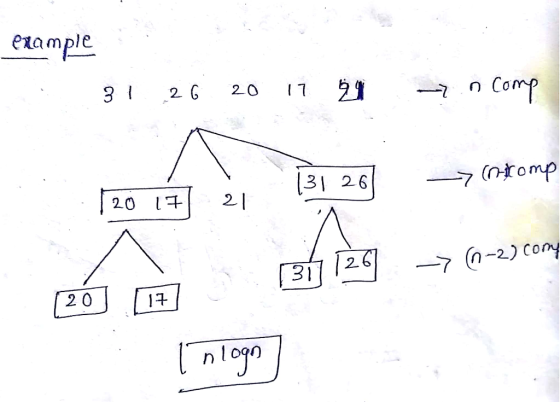 example
31 26 20 17 21 → n comp
20 17 21 31 26 → (n-1)comp
20 17 31 26 → (n-2) com
nlogn